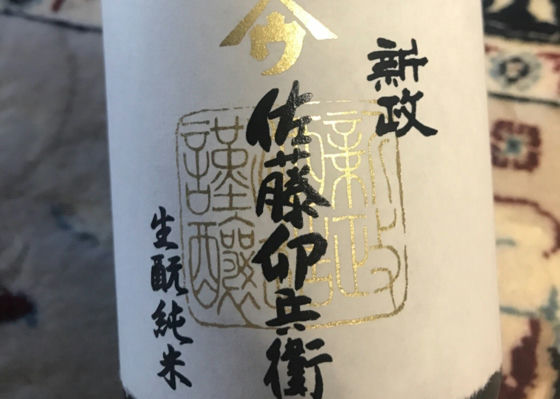 新政
佐藤卯兵衛
生酛純米
謹醸